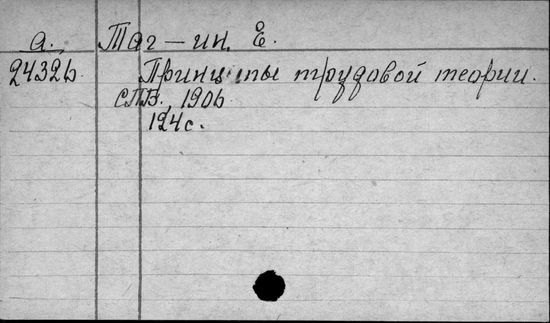 а. Таг-ин, Е.
24326. Принципы трудовой теории.
СПБ, 1906
124с.